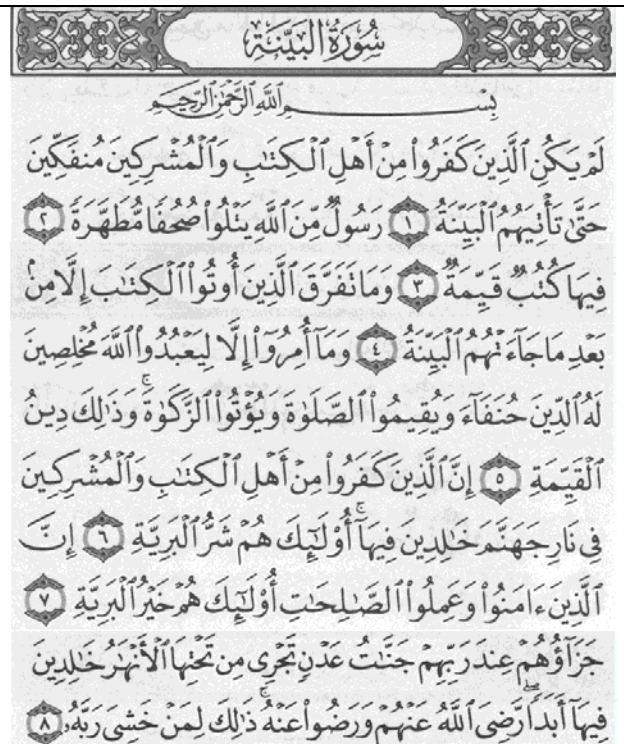 سُورَةُ الْبَيِّنَةِ
بِسْمِ ٱللَّهِ ٱلرَّحْمَٰنِ ٱلرَّحِيمِ
لَمْ يَكُنِ ٱلَّذِينَ كَفَرُوا۟ مِنْ أَهْلِ ٱلْكِتَٰبِ وَٱلْمُشْرِكِينَ مُنفَكِّينَ
حَتَّىٰ تَأْتِيَهُمُ ٱلْبَيِّنَةُ ١ رَسُولٌ مِّنَ ٱللَّهِ يَتْلُوا۟ صُحُفًا مُّطَهَّرَةً ٢
فِيهَا كُتُبٌ قَيِّمَةٌ ٣ وَمَا تَفَرَّقَ ٱلَّذِينَ أُوتُوا۟ ٱلْكِتَٰبَ إِلَّا مِنۢ
بَعْدِ مَا جَآءَتْهُمُ ٱلْبَيِّنَةُ ٤ وَمَآ أُمِرُوٓا۟ إِلَّا لِيَعْبُدُوا۟ ٱللَّهَ مُخْلِصِينَ
لَهُ ٱلدِّينَ حُنَفَآءَ وَيُقِيمُوا۟ ٱلصَّلَوٰةَ وَيُؤْتُوا۟ ٱلزَّكَوٰةَ ۚ وَذَٰلِكَ دِينُ
ٱلْقَيِّمَةِ ٥ إِنَّ ٱلَّذِينَ كَفَرُوا۟ مِنْ أَهْلِ ٱلْكِتَٰبِ وَٱلْمُشْرِكِينَ
فِى نَارِ جَهَنَّمَ خَٰلِدِينَ فِيهَآ ۚ أُو۟لَٰٓئِكَ هُمْ شَرُّ ٱلْبَرِيَّةِ ٦ إِنَّ
ٱلَّذِينَ ءَامَنُوا۟ وَعَمِلُوا۟ ٱلصَّٰلِحَٰتِ أُو۟لَٰٓئِكَ هُمْ خَيْرُ ٱلْبَرِيَّةِ ٧
جَزَآؤُهُمْ عِندَ رَبِّهِمْ جَنَّٰتُ عَدْنٍ تَجْرِى مِن تَحْتِهَا ٱلْأَنْهَٰرُ خَٰلِدِينَ
فِيهَآ أَبَدًا ۖ رَّضِىَ ٱللَّهُ عَنْهُمْ وَرَضُوا۟ عَنْهُ ۚ ذَٰلِكَ لِمَنْ خَشِىَ رَبَّهُۥ ٨